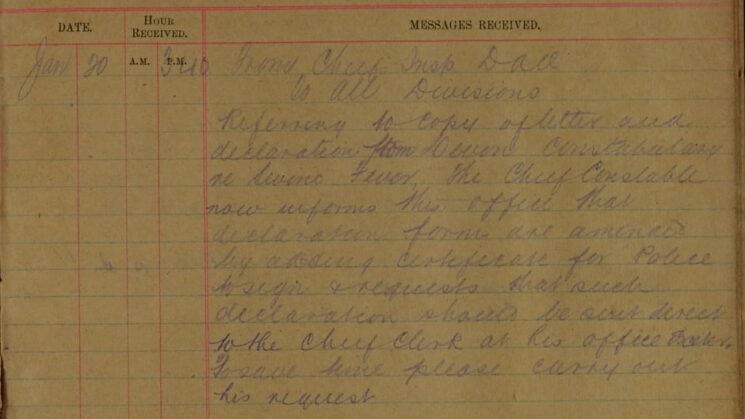 DATE.
HOUR RECEIVED.
MESSAGES RECEIVED.
A.M. P.M.
Jan 20 3 40 From Chief Insp Dall
to All Divisions
Referring to copy of letter and
declaration from Devon Constabulary
re Swine Fever, the Chief Constable
now informs this office that
declaration forms are amended
by adding certificate for Police
to sign & requests that such
declaration should be sent direct
to the Chief Clerk at his office Exeter.
To save time please carry out
his request